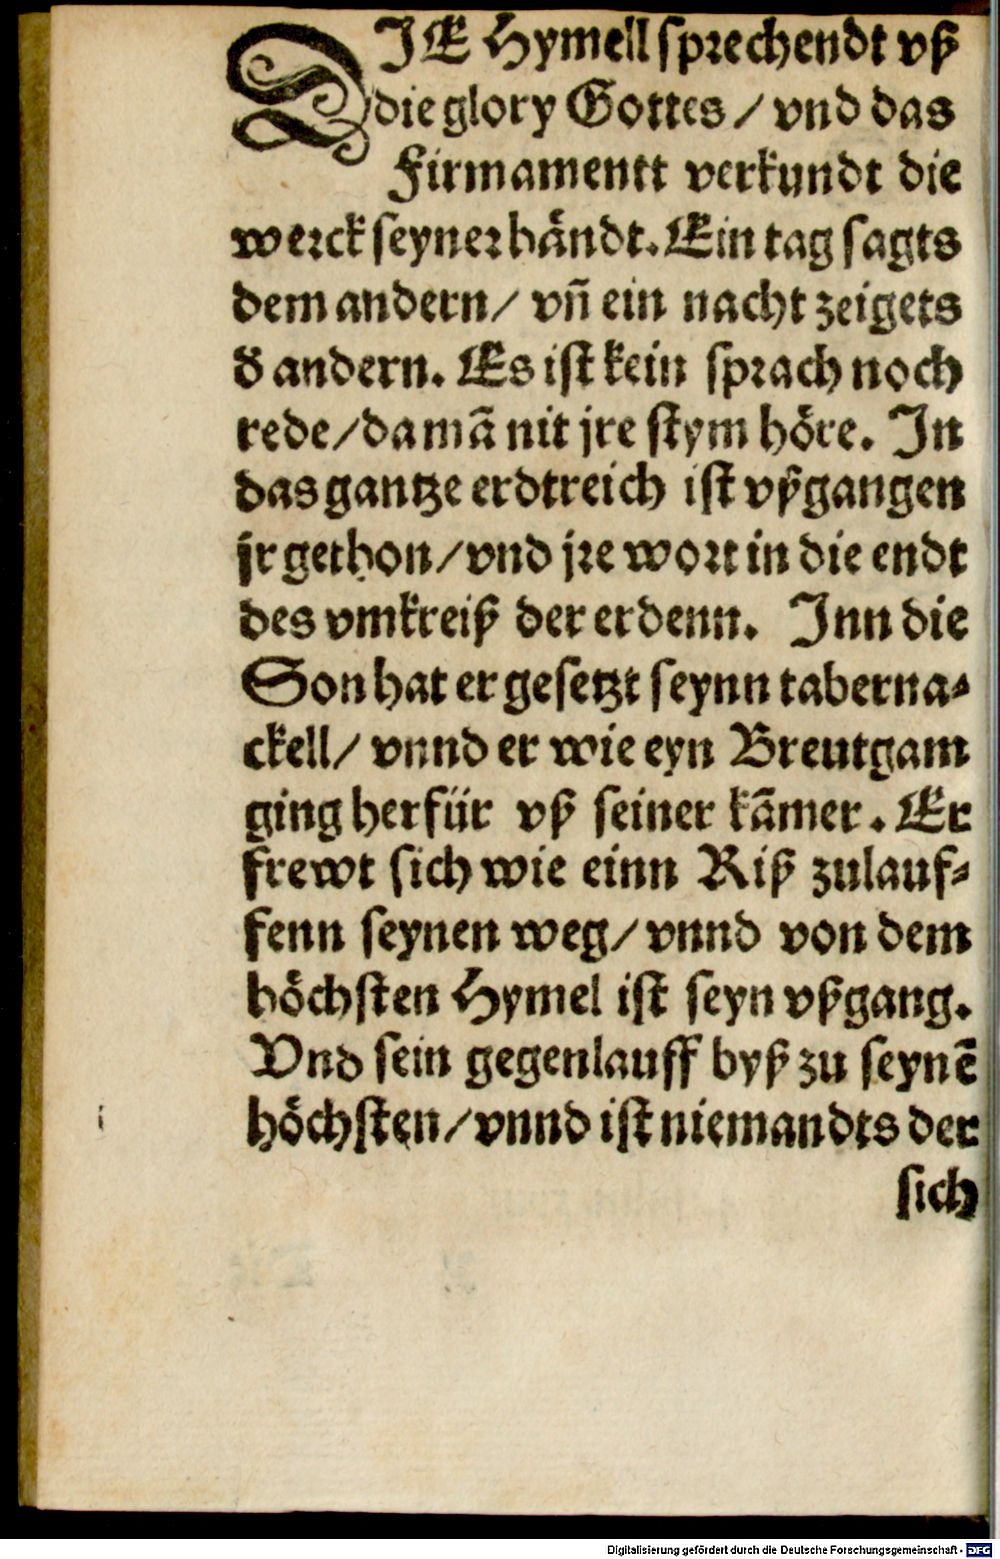 DJE Hymell sprechendt vß
die glory Gottes / vnd das
Firmamentt verkundt die
werck seyner håndt. Ein tag sagts
dem andern / vñ ein nacht zeigets
đ andern. Es ist kein sprach noch
rede / da mã nit jre stym höre. In
das gantze erdtreich ist vßgangen
jr gethon / vnd jre wort in die endt
des vmkreiß der erdenn. Inn die
Son hat er gesetzt seynn taberna⸗
ckell / vnnd er wie eyn Breutgam
ging herfür vß seiner kãmer. Er
frewt sich wie einn Riß zulauf⸗
fenn seynen weg / vnnd von dem
höchsten Hymel ist seyn vßgang.
Vnd sein gegenlauff byß zu seynẽ
höchsten / vnnd ist niemandts der
sich
Digitalisierung gefördert durch die Deutsche Forschungsgemeinschaft - DFG